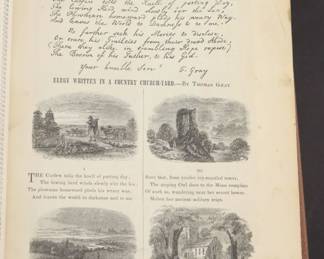 The lowing Herd wind slowly o'er the Lea;
The Plowman homeward plods his weary Way,
And leaves the World to Darkness & to me.
No farther seek his Merits to disclose,
(There they alike in trembling Hope repose)
The Bosom of his Father, & his God.
Your humble Serv.t
T. Gray
ELEGY WRITTEN IN A COUNTRY CHURCH-YARD.—BY THOMAS GRAY.
I.
THE Curfew tolls the knell of parting day;
The lowing herd winds slowly o'er the lea,
The plowman homeward plods his weary way,
And leaves the world to darkness and to me.
III.
Save that, from yonder ivy-mantled tower,
The moping Owl does to the Moon complain
Of such as, wandering near her secret bower,
Molest her ancient solitary reign.